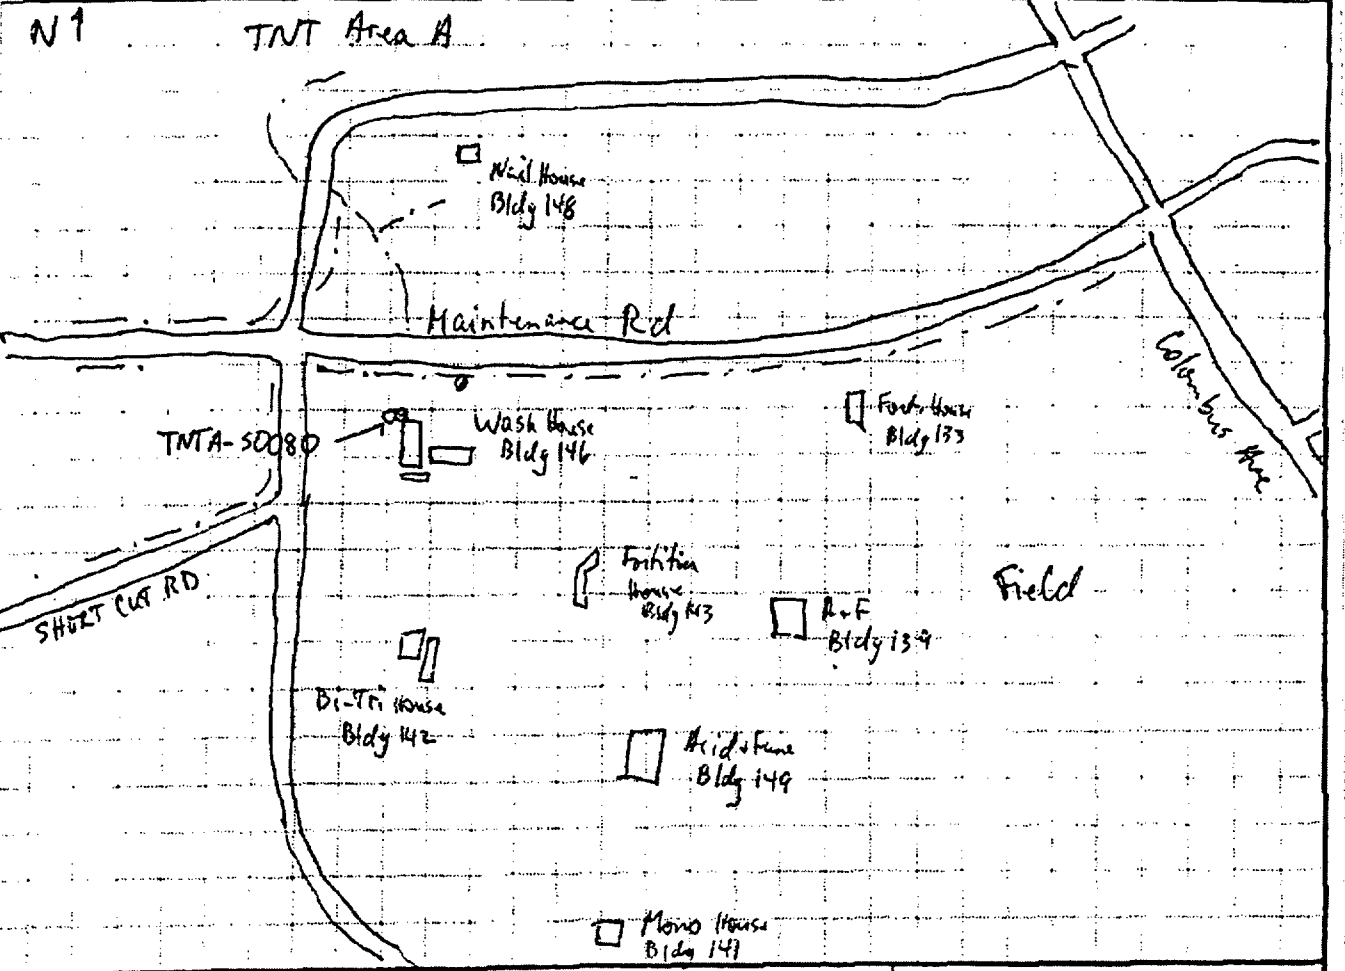 N↑
TNT Area A
Nail House
Bldg 148
Maintenance Rd
Columbus Ave
House
Bldg 133
Wash House
Bldg 146
TNTA-SO080
SHORT CUT RD
House
Bldg 143
Field
Bldg 139
Bi-Tri House
Bldg 142
Acid + Fume
Bldg 149
Mono House
Bldg 141